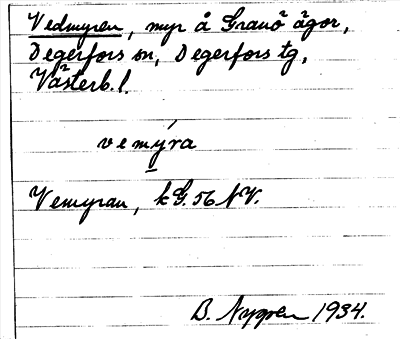 Vedmyren, myr å Granö ägor,
Degerfors sn, Degerfors tg,
Västerb. l.
vemýra
Vemyran, kG. 56 NV.
B. Nygren 1934.